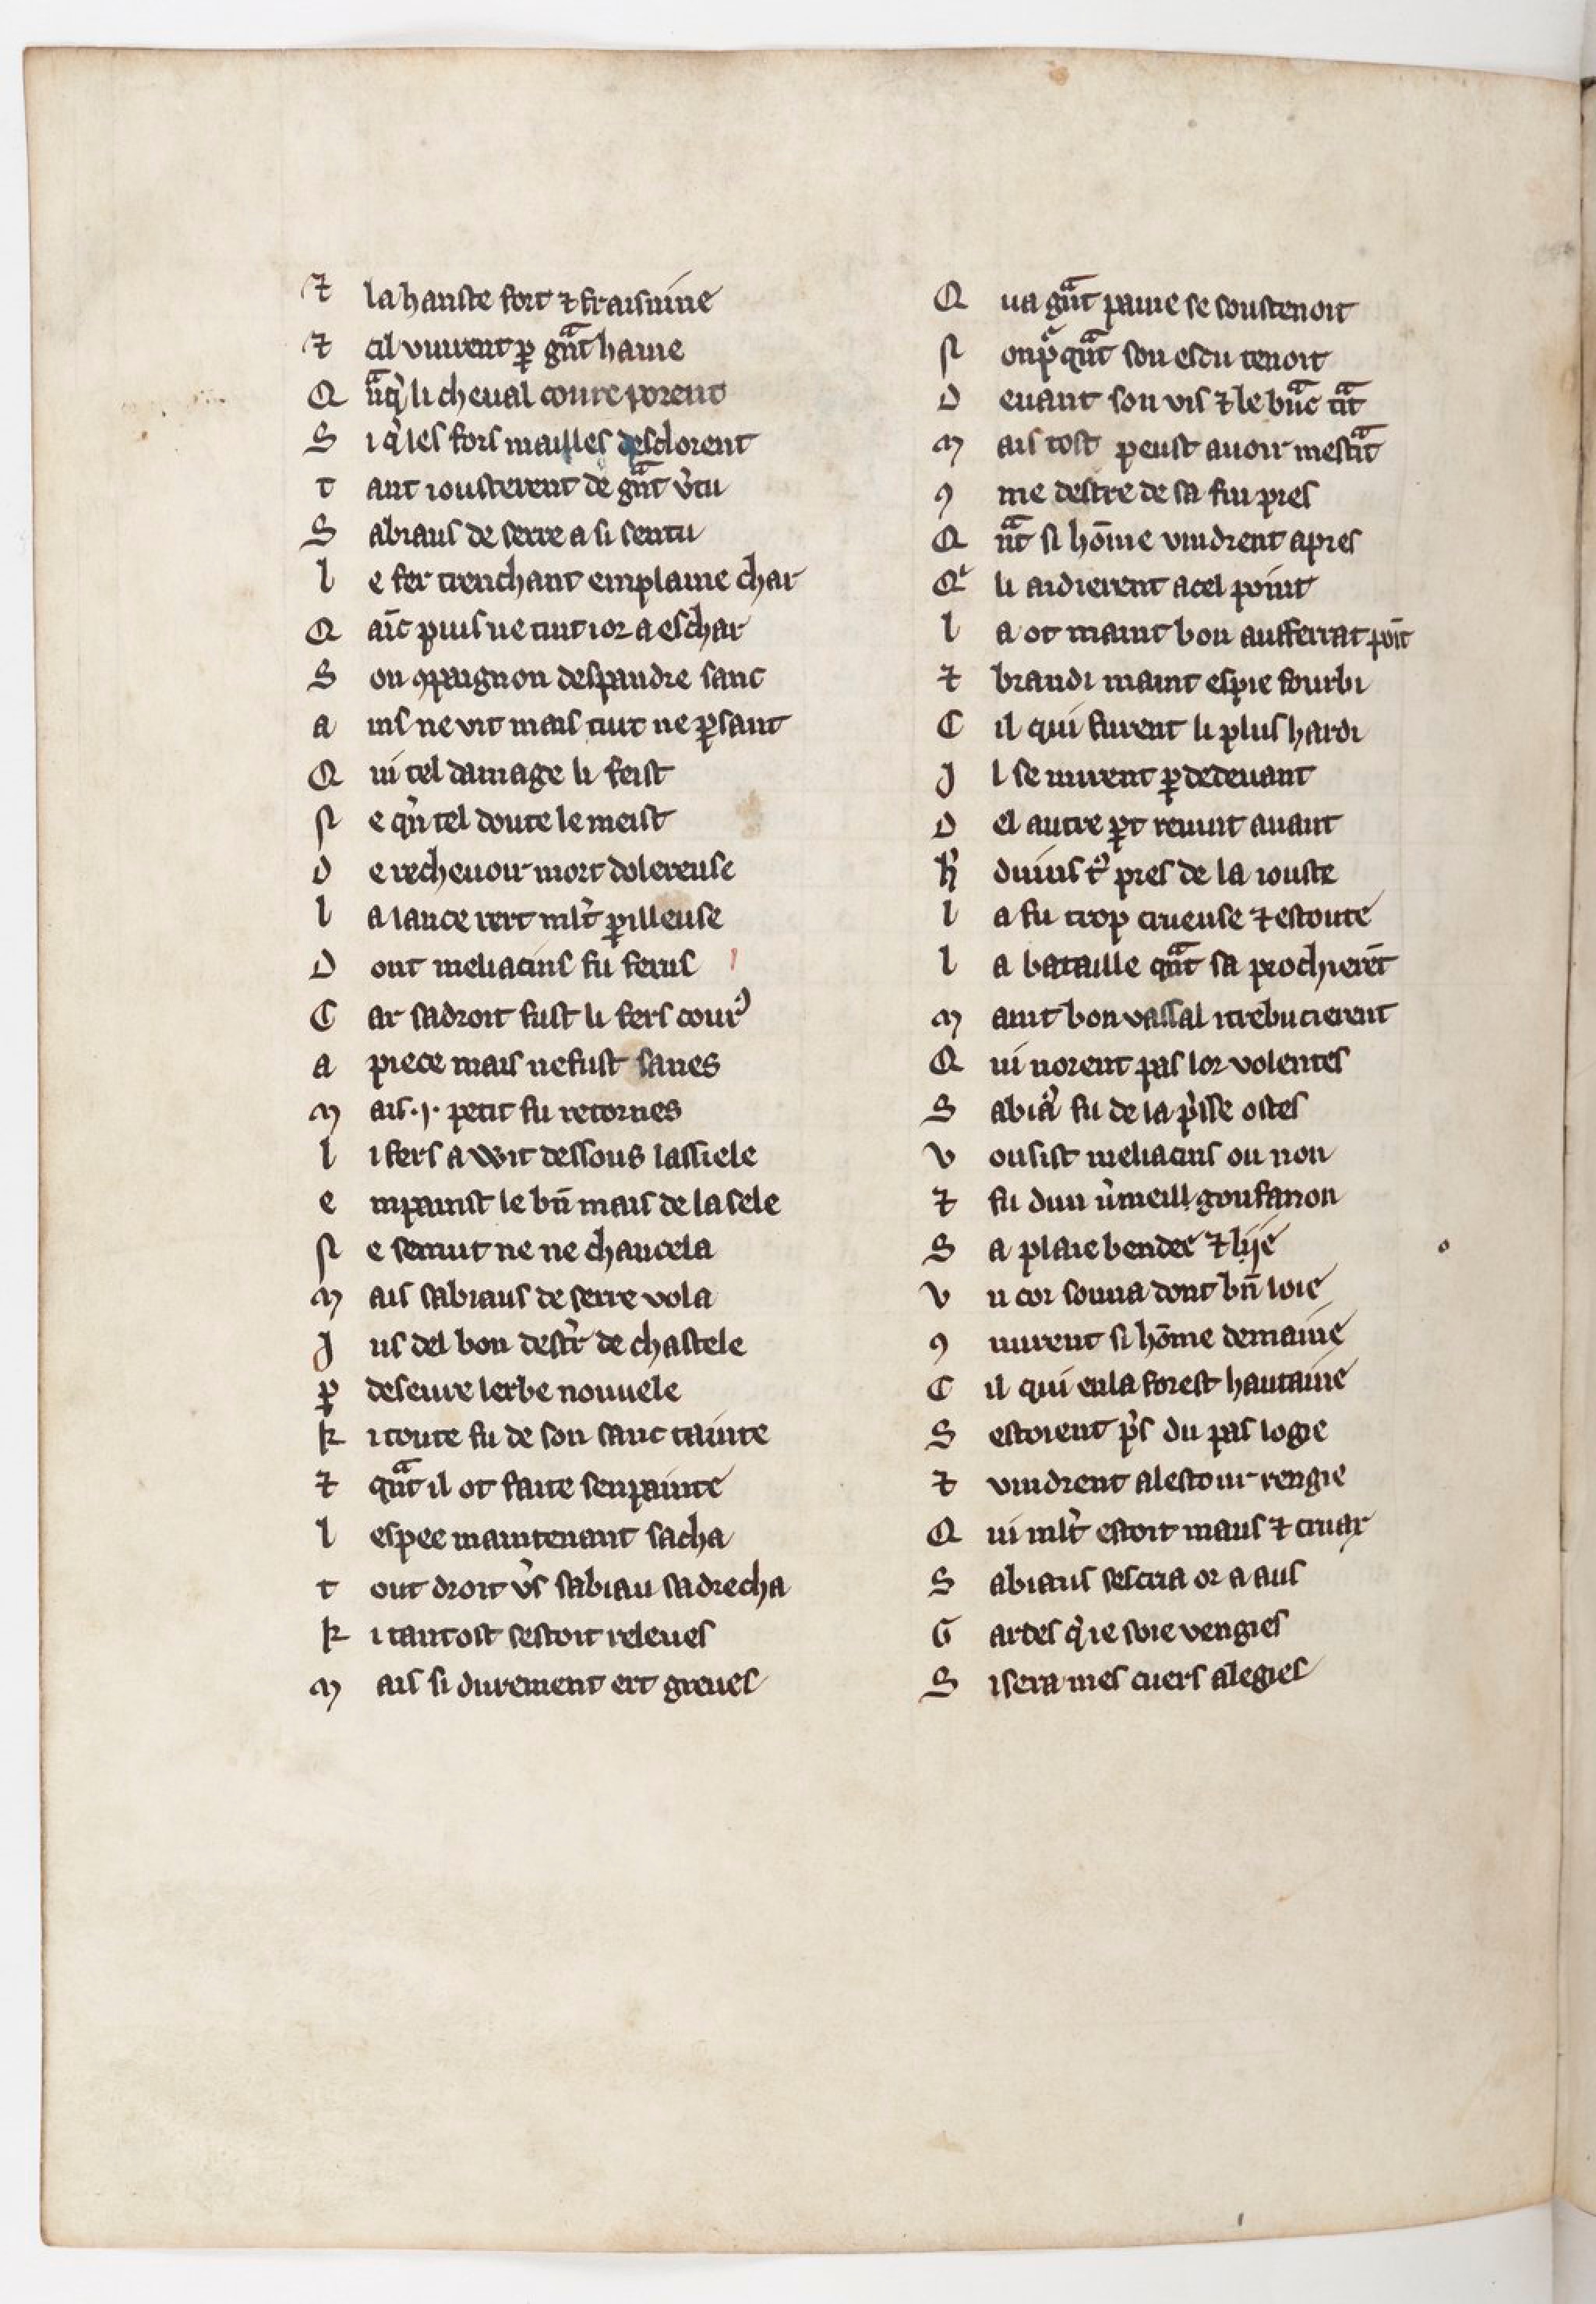 ⁊ la hanste fort ⁊ fraisnine
⁊ cil vinrent ꝑ gͣnt haine
Q ͣnq̉ li cheual coure porent
S i q̉ les fors mailles desclorent
t ant iousterent de gͣnt v̉tu
S abiaus de serre a si sentu
l e fer trenchant em plaine char
Q ainc puis ne tint ior a eschar
S on ꝯpaignon despandre sanc
a ins ne vit mais tiut ne ꝑsant
Q ui tel damage li feist
N e q̉n tel doute le meist
D e rechevoir mort dolereuse
l a lance iert ml̉t ꝑilleuse
D ont meliacins fu ferus
C ar sa droit fust li fers cour᾽
a piece mais ne fust sanes
M ais .j. petit fu retornes
l i fers a wit dessous lassiele
e mpainst le bn̄ mais de la sele
N e semut ne ne chancela
M ais sabiaus de serre vola
J us del bon destr̉ de chastele
ꝑ deseure lerbe nouuele
k i toute fu de son sanc tainte
⁊ qͣnt il ot faite senpainte
l espee maintenant sacha
t out droit v̉s sabiau sadrecha
k i tantost sestoit releues
M ais si durement ert greues
Q ua gͣnt paine se soustenoit
N onpͦqͣnt son escu tenoit
D euant son vis ⁊ le bͣnc tͣnt
M ais tost peust auoir mestͣit
ꝯ me destre de sa fin pres
Q ͣnt si hōme vindrent apres
Qͥ li aidierent a cel point
l a ot maint bon aufferrat point
⁊ brandi maint espie fourbi
C il qui furent li plus hardi
J l se mirent ꝑ dedeuant
D el autre ꝑt reuint auant
k᾽ duins t᾽ pres de la iouste
l a fu trop crueuse ⁊ estoute
l a bataille qͣnt sa prochierēt
M aint bon vassal i trebucierent
Q ui norent pas lor volentes
S abia᾽ fu de la p̉sse ostes
V ousist meliacins ou non
⁊ fu dun v̉meill gonfanon
S a plaie bendee ⁊ lijé
V n cor sonna dont bn̄ loie
ꝯ nurent si hōme demaine
C il qui en la forest hautaine
S estoient p̉s du pas logie
⁊ vindrent a lestour rengie
Q ui ml̉t estoit maus ⁊ cruax
S abiaus sescria or a aus
G ardes q̉ ie soie vengies
S i sera mes cuers alegies